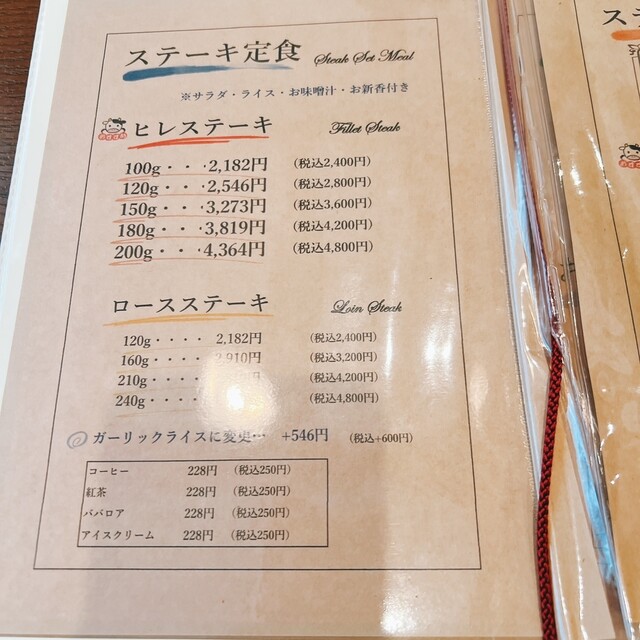 ステーキ定食 Steak Set Meal
※サラダ・ライス・お味噌汁・お新香付き
おすすめ ヒレステーキ Fillet Steak
100g・・・2,182円 (税込2,400円)
120g・・・2,546円 (税込2,800円)
150g・・・3,273円 (税込3,600円)
180g・・・3,819円 (税込4,200円)
200g・・・4,364円 (税込4,800円)
ロースステーキ Loin Steak
120g・・・・ 2,182円 (税込2,400円)
160g・・・・ 2,910円 (税込3,200円)
210g・・・・ 円 (税込4,200円)
240g・・・ (税込4,800円)
ガーリックライスに変更… +546円 (税込+600円)
コーヒー 228円 (税込250円)
紅茶 228円 (税込250円)
ババロア 228円 (税込250円)
アイスクリーム 228円 (税込250円)
ステ